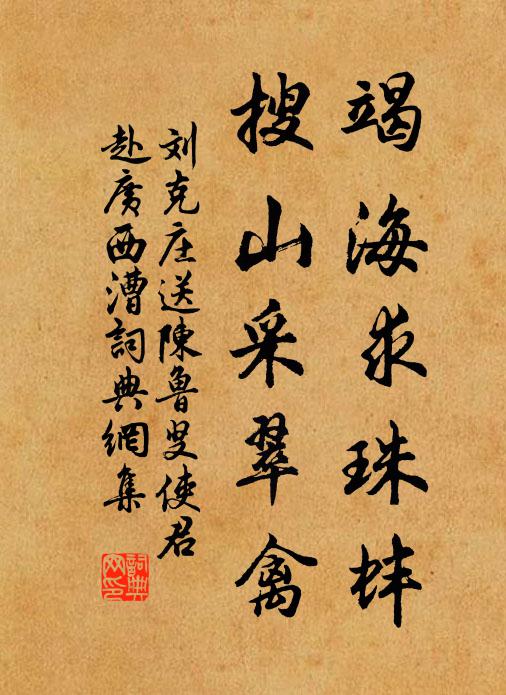 竭海求珠蚌
搜山采翠禽
刘克庄送陳魯叟使君
赴廣西漕詞典網集
詞典
网印